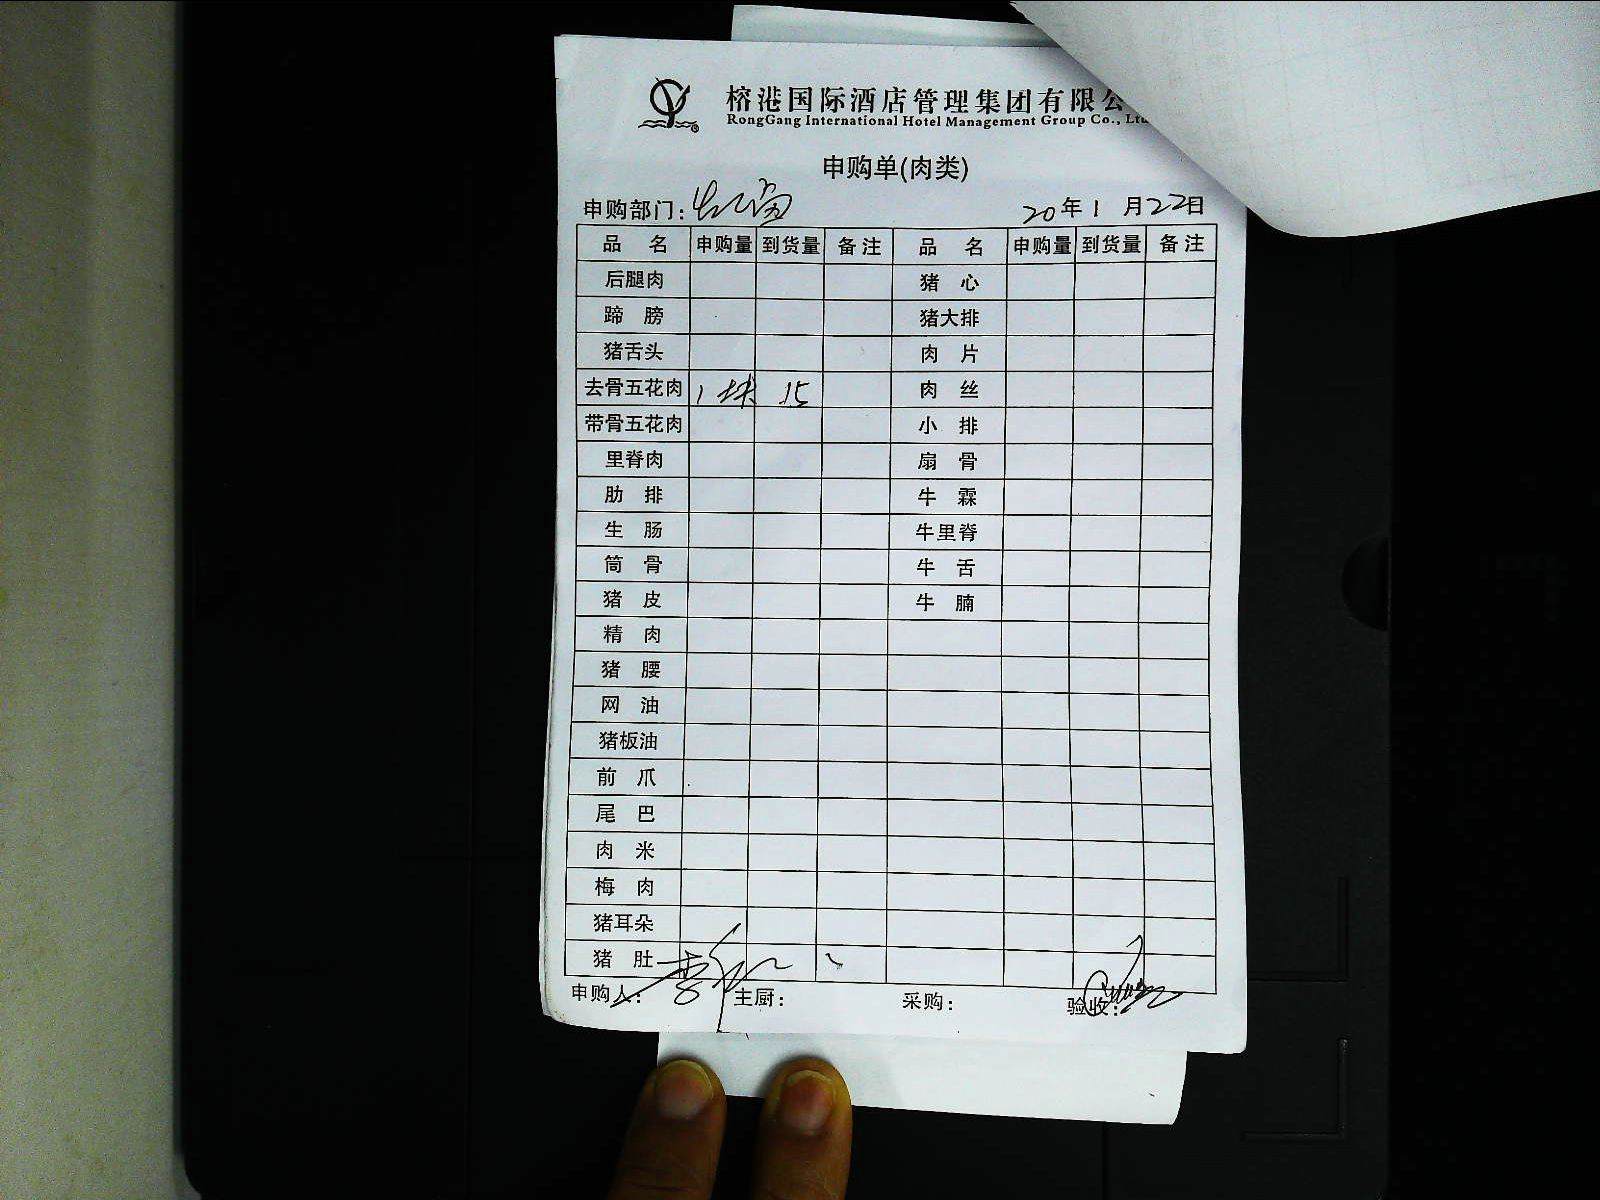 榕港国际酒店管理集团有限公
RongGang International Hotel Management Group Co., Ltd
申购单(肉类)
申购部门: 20年1月22日
品 名 申购量 到货量 备注 品 名 申购量 到货量 备注
后腿肉 猪 心
蹄 膀 猪大排
猪舌头 肉 片
去骨五花肉 1块 15 肉 丝
带骨五花肉 小 排
里脊肉 扇 骨
肋 排 牛 霖
生 肠 牛里脊
筒 骨 牛 舌
猪 皮 牛 腩
精 肉
猪 腰
网 油
猪板油
前 爪
尾 巴
肉 米
梅 肉
猪耳朵
猪 肚
申购人: 主厨: 采购: 验收: